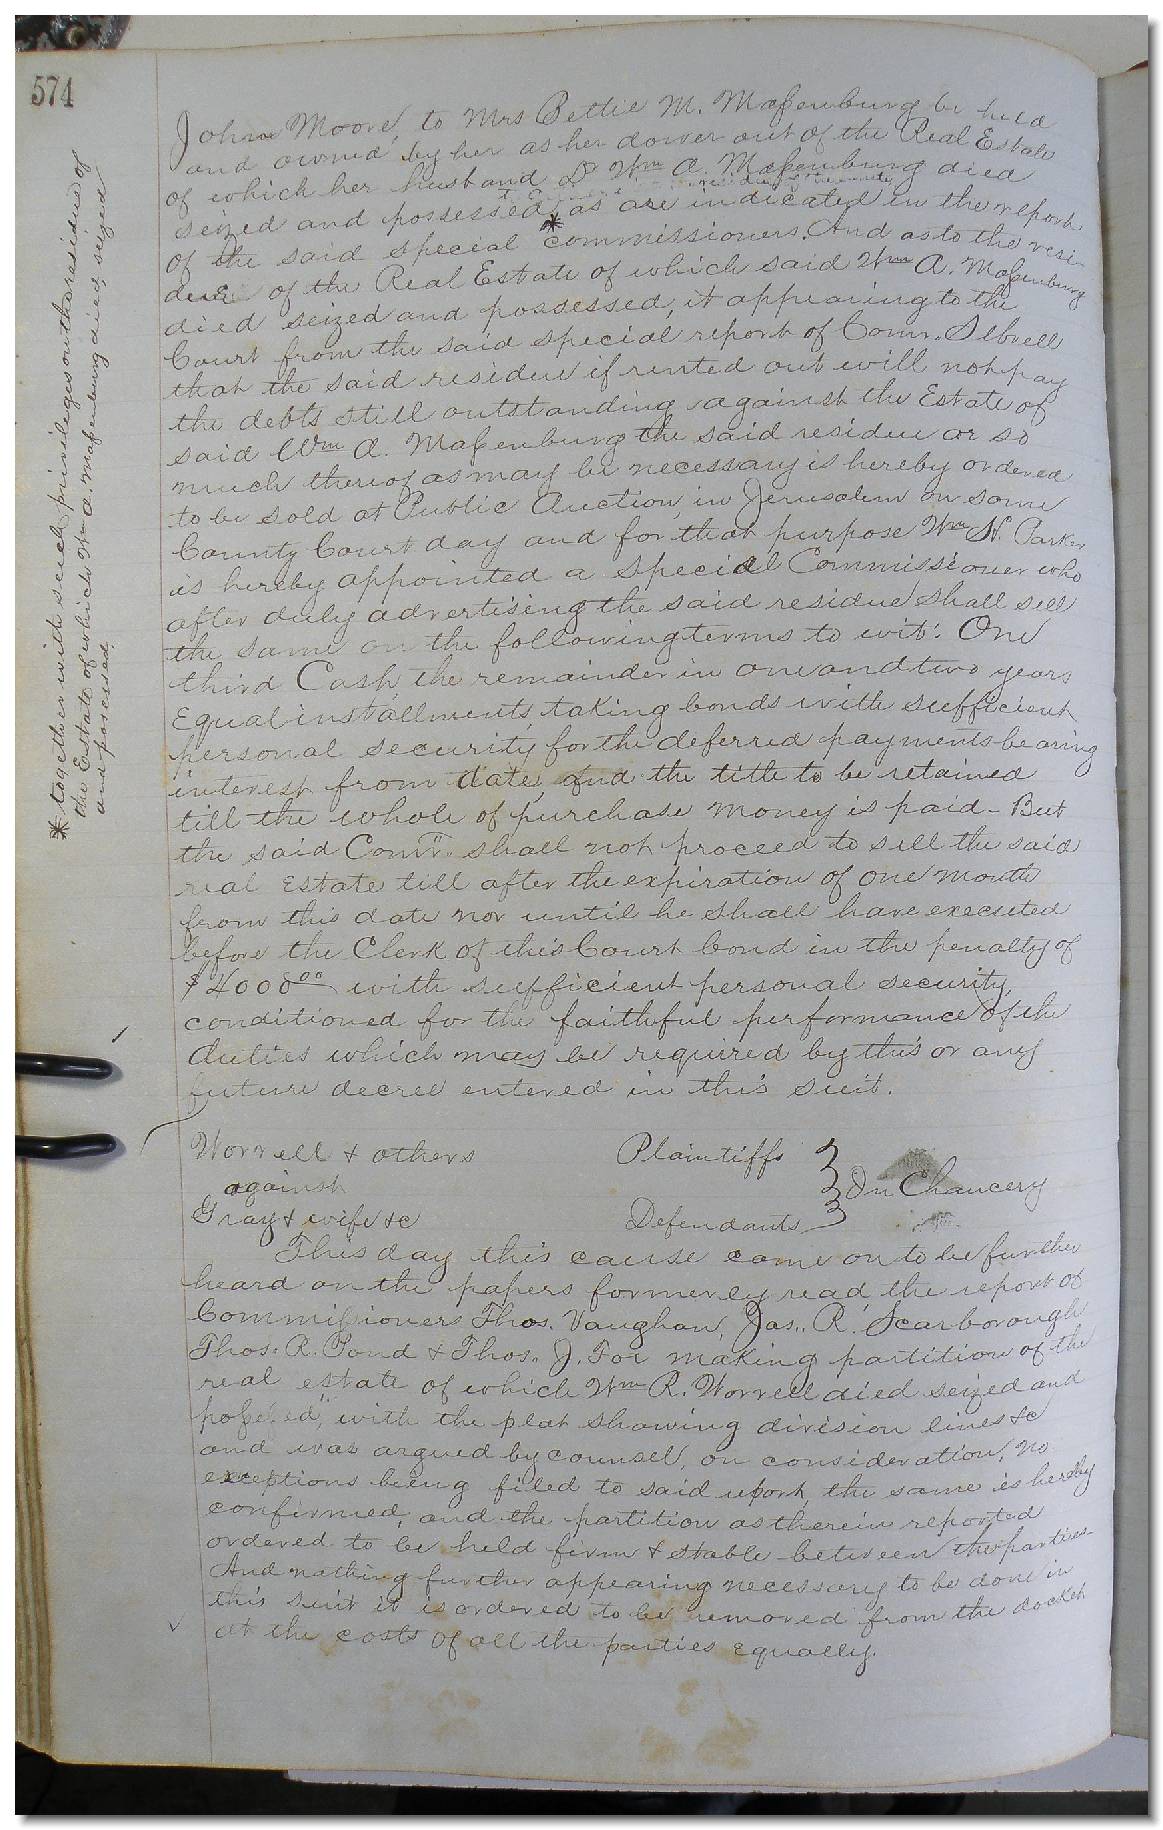 574
John Moore, to Mrs Bettie M. Massenburg be held
and owned by her as her dower out of the Real Estate
of which her husband Dr Wm A. Massenburg died
seized and possessed * as are indicated in the report
of the said special commissioners. And as to the resi-
due of the Real Estate of which said Wm A. Massenburg
died seized and possessed, it appearing to the
Court from the said special report of Comr. Sebrell
that the said residue if rented out will not pay
the debts still outstanding against the Estate of
said Wm A. Massenburg the said residue or so
much thereof as may be necessary is hereby ordered
to be sold at Public Auction, in Jerusalem on some
County Court day and for that purpose Wm H. Parker
is hereby appointed a special Commissioner who
after duly advertising the said residue shall sell
the same on the following terms to wit: One
third Cash, the remainder in one and two years
Equal installments taking bonds with sufficient
personal security for the deferred payments bearing
interest from date, and the title to be retained
till the whole of purchase money is paid - But
the said Comr. shall not proceed to sell the said
real Estate till after the expiration of one month
from this date nor until he shall have executed
before the Clerk of this Court bond in the penalty of
$4000.00 with sufficient personal security,
conditioned for the faithful performance of the
duties which may be required by this or any
future decree entered in this suit.
* together with such privileges on the residue of
the Estate of which Wm A. Massenburg died seized
and possessed.
Worrell & others Plaintiffs
against In Chancery
Gray & wife &c Defendants
This day this cause came on to be further
heard on the papers formerly read, the report of
Commissioners Thos. Vaughan, Jas. R. Scarborough
Thos. R. Pond & Thos. J. Fox making partition of the
real estate of which Wm R. Worrell died seized and
possessed, with the plat showing division lines &c
and was argued by counsel, on consideration, no
exceptions being filed to said report, the same is hereby
confirmed, and the partition as therein reported
ordered to be held firm & stable between the parties-
And nothing further appearing necessary to be done in
this suit it is ordered to be removed from the docket
at the costs of all the parties equally.